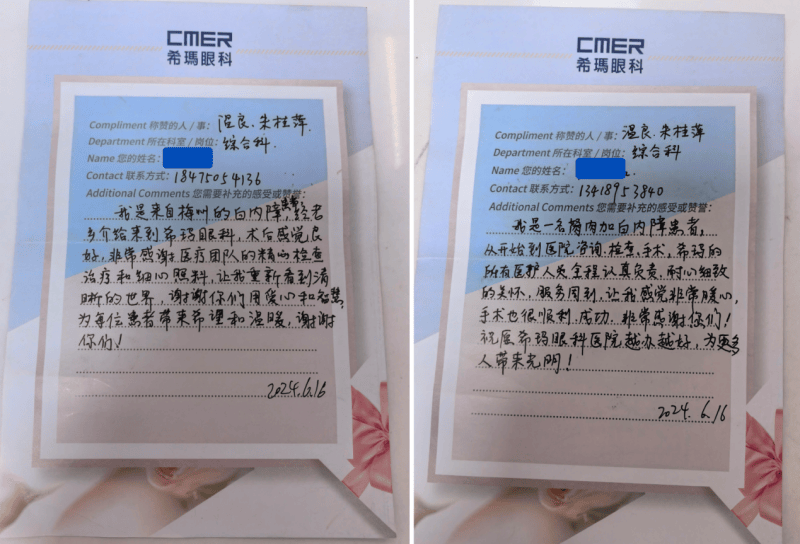 CMER
希瑪眼科
Compliment 称赞的人 / 事： 温良.朱桂萍.
Department 所在科室 / 岗位： 综合科
Name 您的姓名：
Contact 联系方式： 18475054136
Additional Comments 您需要补充的感受或赞誉：
我是来自梅州的白内障患者,经老
乡介绍来到希玛眼科,术后感觉良
好,非常感谢医疗团队的精心检查
治疗和细心照料,让我重新看到清
晰的世界,谢谢你们用爱心和智慧,
为每位患者带来希望和温暖,谢谢
你们!
2024.6.16
CMER
希瑪眼科
Compliment 称赞的人 / 事： 温良.朱桂萍
Department 所在科室 / 岗位： 综合科
Name 您的姓名：
Contact 联系方式： 13418953840
Additional Comments 您需要补充的感受或赞誉：
我是一名胬肉加白内障患者,
从开始到医院咨询.检查.手术,希玛的
所有医护人员全程认真负责,耐心细致
的关怀,服务周到,让我感觉非常暖心,
手术也很顺利.成功.非常感谢你们!
祝愿希玛眼科医院越办越好,为更多
人带来光明!
2024.6.16